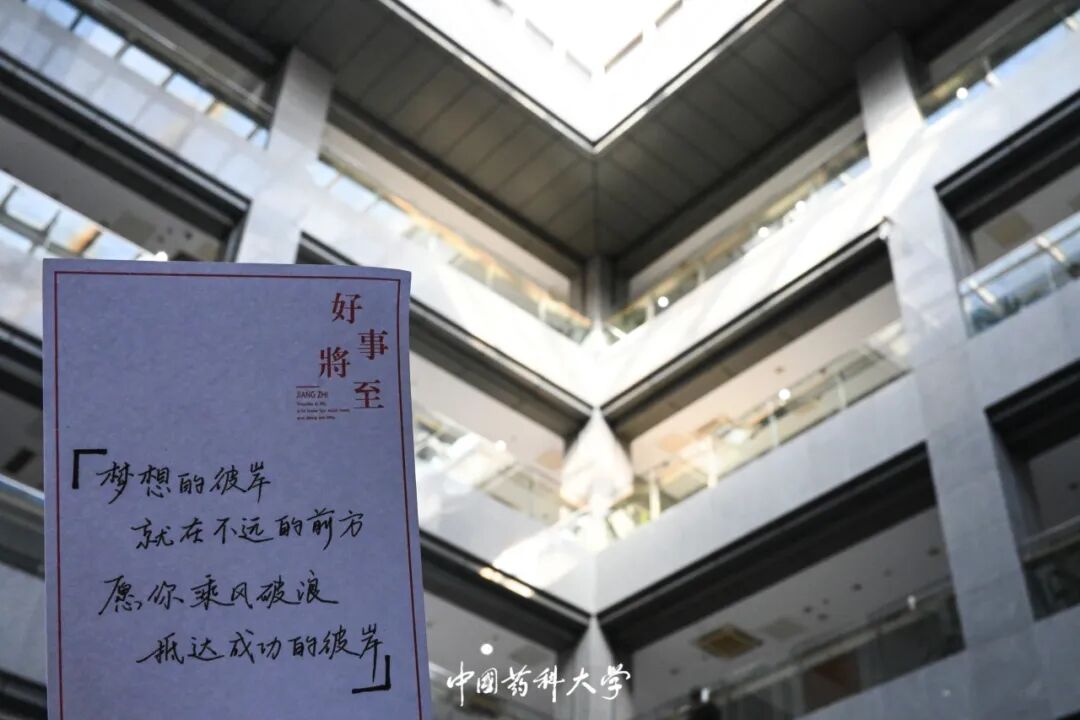 好事將至
JIANG ZHI
「梦想的彼岸
就在不远的前方
愿你乘风破浪
抵达成功的彼岸」
中國药科大学